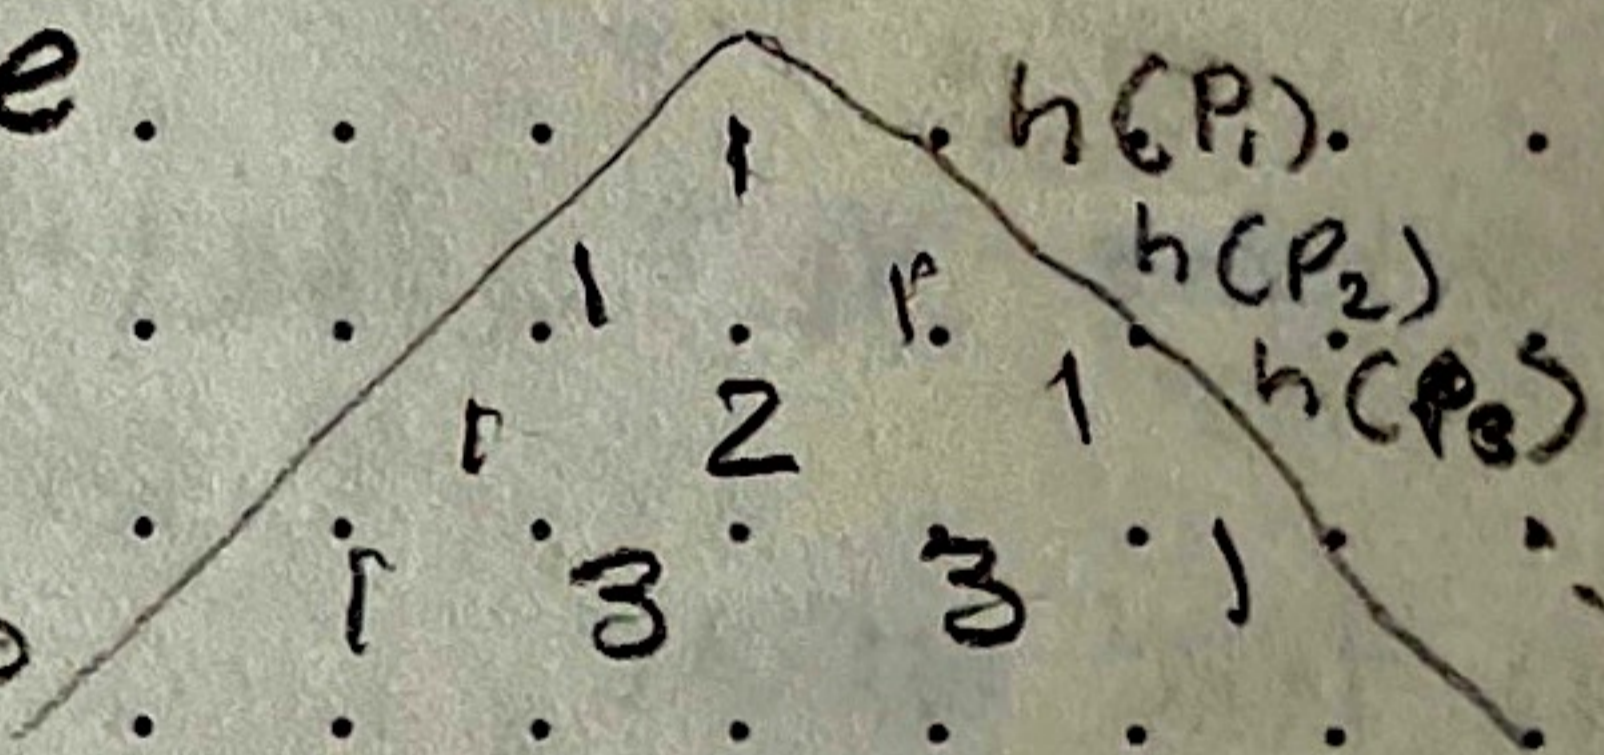 e
1 h(P₁)
1 1 h(P₂)
1 2 1 h(P₃)
1 3 3 1